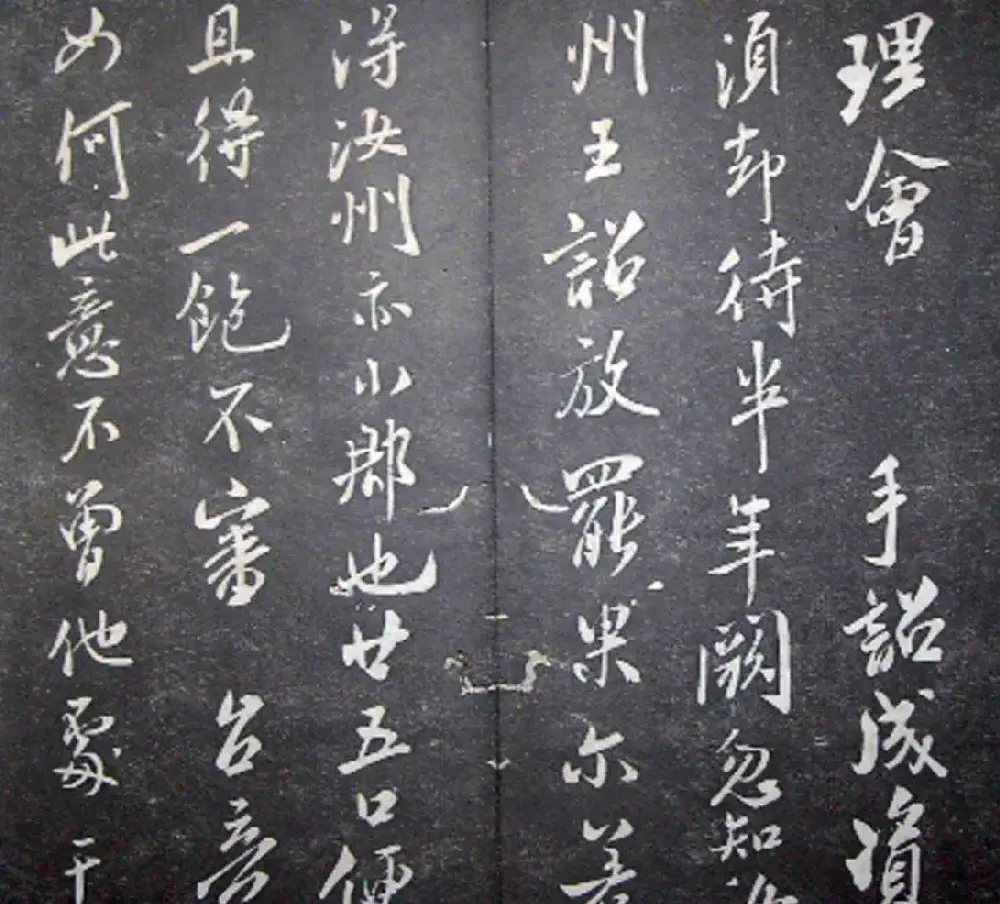 理會 手詔成資
須却待半年闕忽知
州王詔放罷果尔若
得汝州亦小郡也廿五口便
且得一飽不審 台意
如何此意不曾他處干